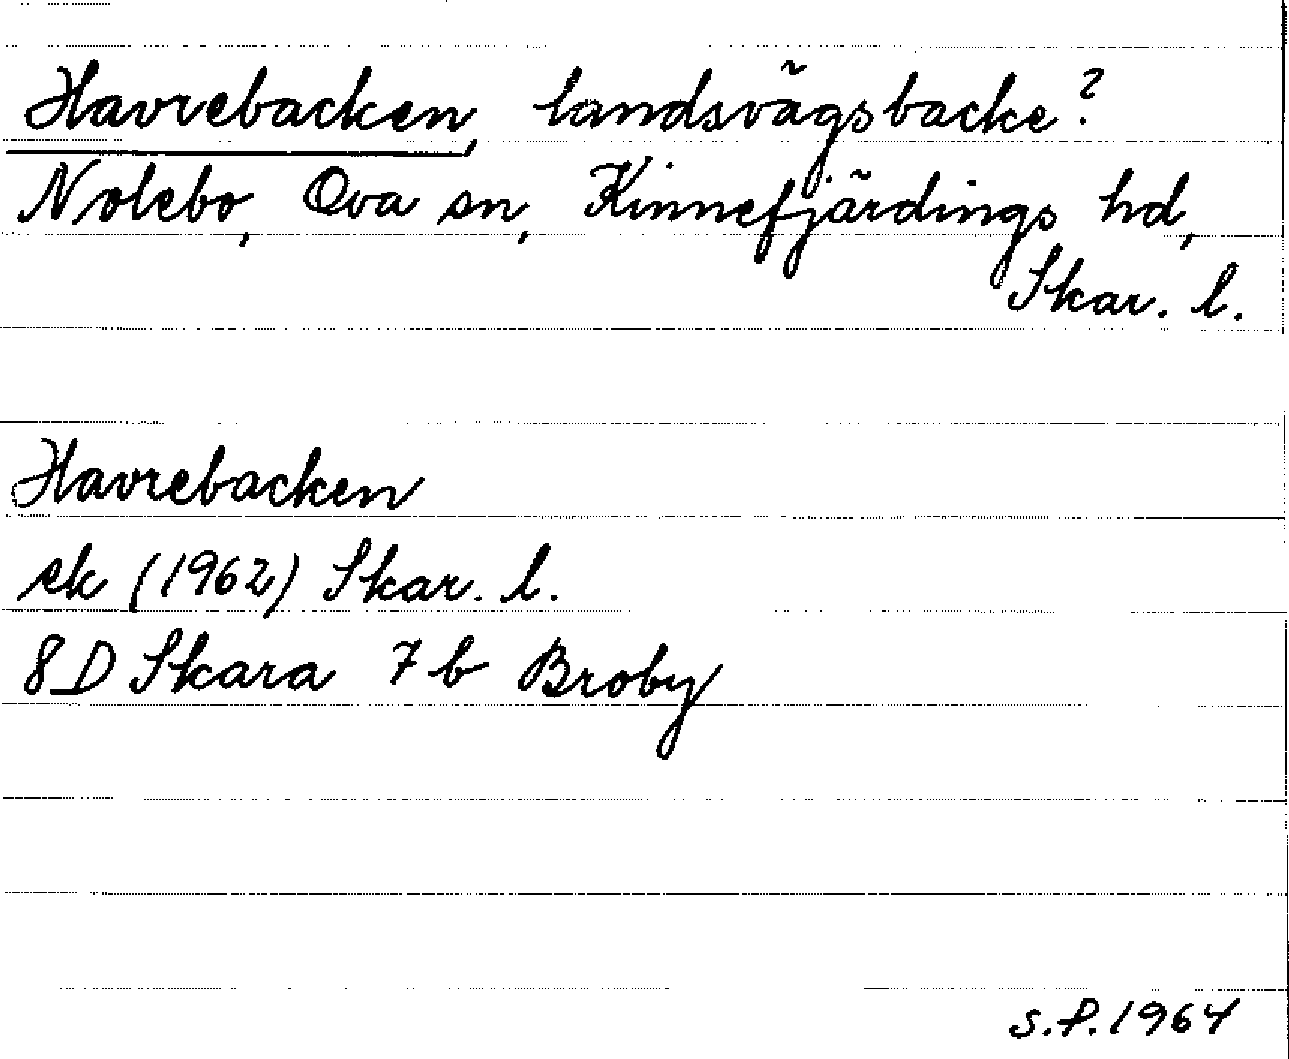 Havrebacken, landsvägsbacke?
Nolebo, Ova sn, Kinnefjärdings hd,
Skar. l.
Havrebacken
ek (1962) Skar. l.
8D Skara 7b Broby
S.P. 1964